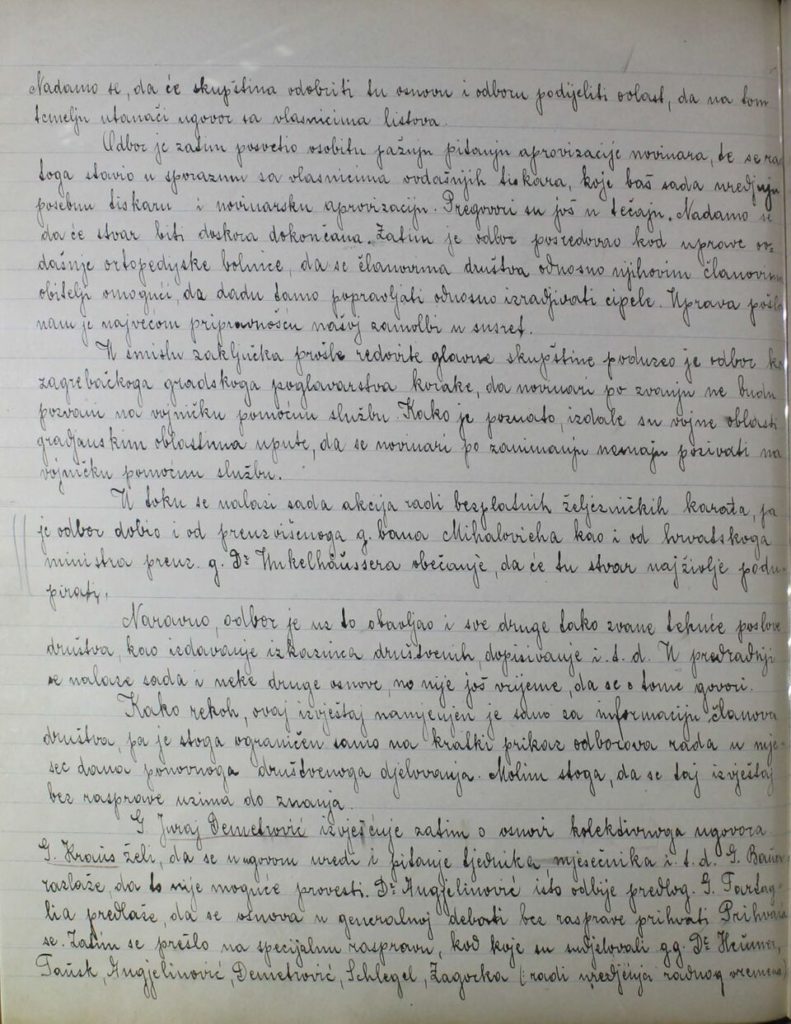 Nadamo se, da će skupština odobriti tu osnovu i odboru podijeliti oblast, da na tom
temelju utanači ugovor sa vlasnicima listova.
Odbor je zatim posvetio osobitu pažnju pitanju aprovizacije novinara, te se ra
toga stavio u sporazum sa vlasnicima ovdašnjih tiskara, koje baš sada uredjuju
posebnu tiskaru i novinarsku aprovizaciju. Pregovori su još u tečaju. Nadamo se
da će stvar biti doskora dokončana. Zatim je odbor posredovao kod uprave ov-
dašnje ortopedijske bolnice, da se članovima društva odnosno njihovim članovima
obitelji omogući, da dadu tamo popravljati odnosno izradjivati cipele. Uprava pošla
nam je najvećom pripravnošću našoj zamolbi u susret.
U smislu zaključka prošle redovite glavne skupštine poduzeo je odbor kod
zagrebačkoga gradskoga poglavarstva korake, da novinari po zvanju ne budu
pozvani na vojničku pomoćnu službu. Kako je poznato, izdale su vojne oblasti
gradjanskim oblastima upute, da se novinari po zanimanju nemaju pozivati na
vojničku pomoćnu službu.
U toku se nalazi sada akcija radi bezplatnih željezničkih karata, pa
je odbor dobio i od preuzvišenoga g. bana Mihalovicha kao i od hrvatskoga
ministra preuz. g. Dr Unkelhäussera obećanje, da će tu stvar najživlje podu-
pirati.
Naravno, odbor je uz to obavljao i sve druge tako zvane tekuće poslove
društva, kao izdavanje izkaznica društvenih, dopisivanje i. t. d. U predradnji
se nalaze sada i neke druge osnove, no nije još vrijeme, da se o tome govori.
Kako rekoh, ovaj izvještaj namjenjen je samo za informaciju članova
društva, pa je stoga ograničen samo na kratki prikaz odborova rada u mje-
sec dana ponovnoga društvenoga djelovanja. Molim stoga, da se taj izvještaj
bez rasprave uzima do znanja.
G. Juraj Demetrović izvješćuje zatim o osnovi kolektivnoga ugovora.
G. Kraus želi, da se u ugovoru uredi i pitanje tjednika mjesečnika i. t. d. G. Bauer
razlaže, da to nije moguće provesti. Dr Angjelinović isto odbije predlog. G. Tartag-
lia predlaže, da se osnova u generalnoj debati bez rasprave prihvati. Prihvaća
se. Zatim se prešlo na specijalnu raspravu, kod koje su sudjelovali gg. Dr
Tausk, Angjelinović, Demetrović, Schlegel, Zagorka (: radi uredjenja radnog vremena)